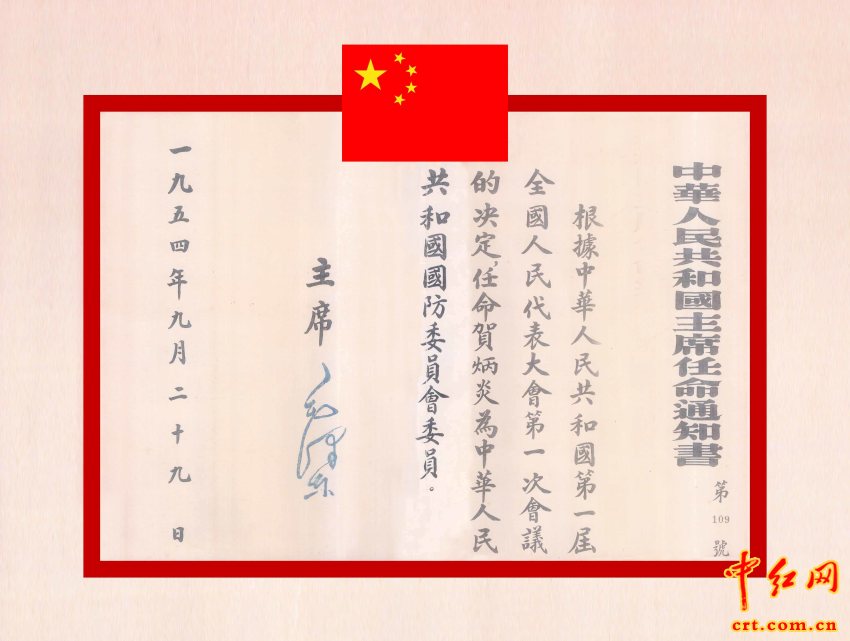 中華人民共和國主席任命通知書
第109號
根據中華人民共和國第一屆
全國人民代表大會第一次會議
的决定，任命賀炳炎為中華人民
共和國國防委員會委員。
主席 毛澤東
一九五四年九月二十九日
中红网
crt.com.cn